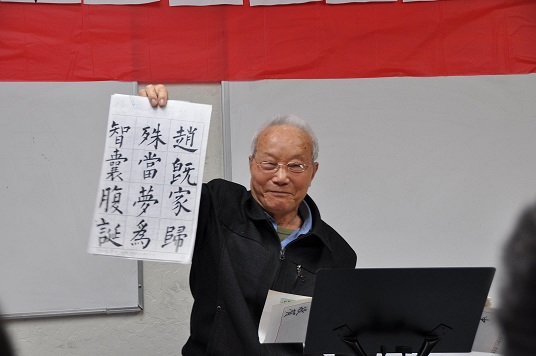 趙既家歸
殊當夢爲
智囊腹誕